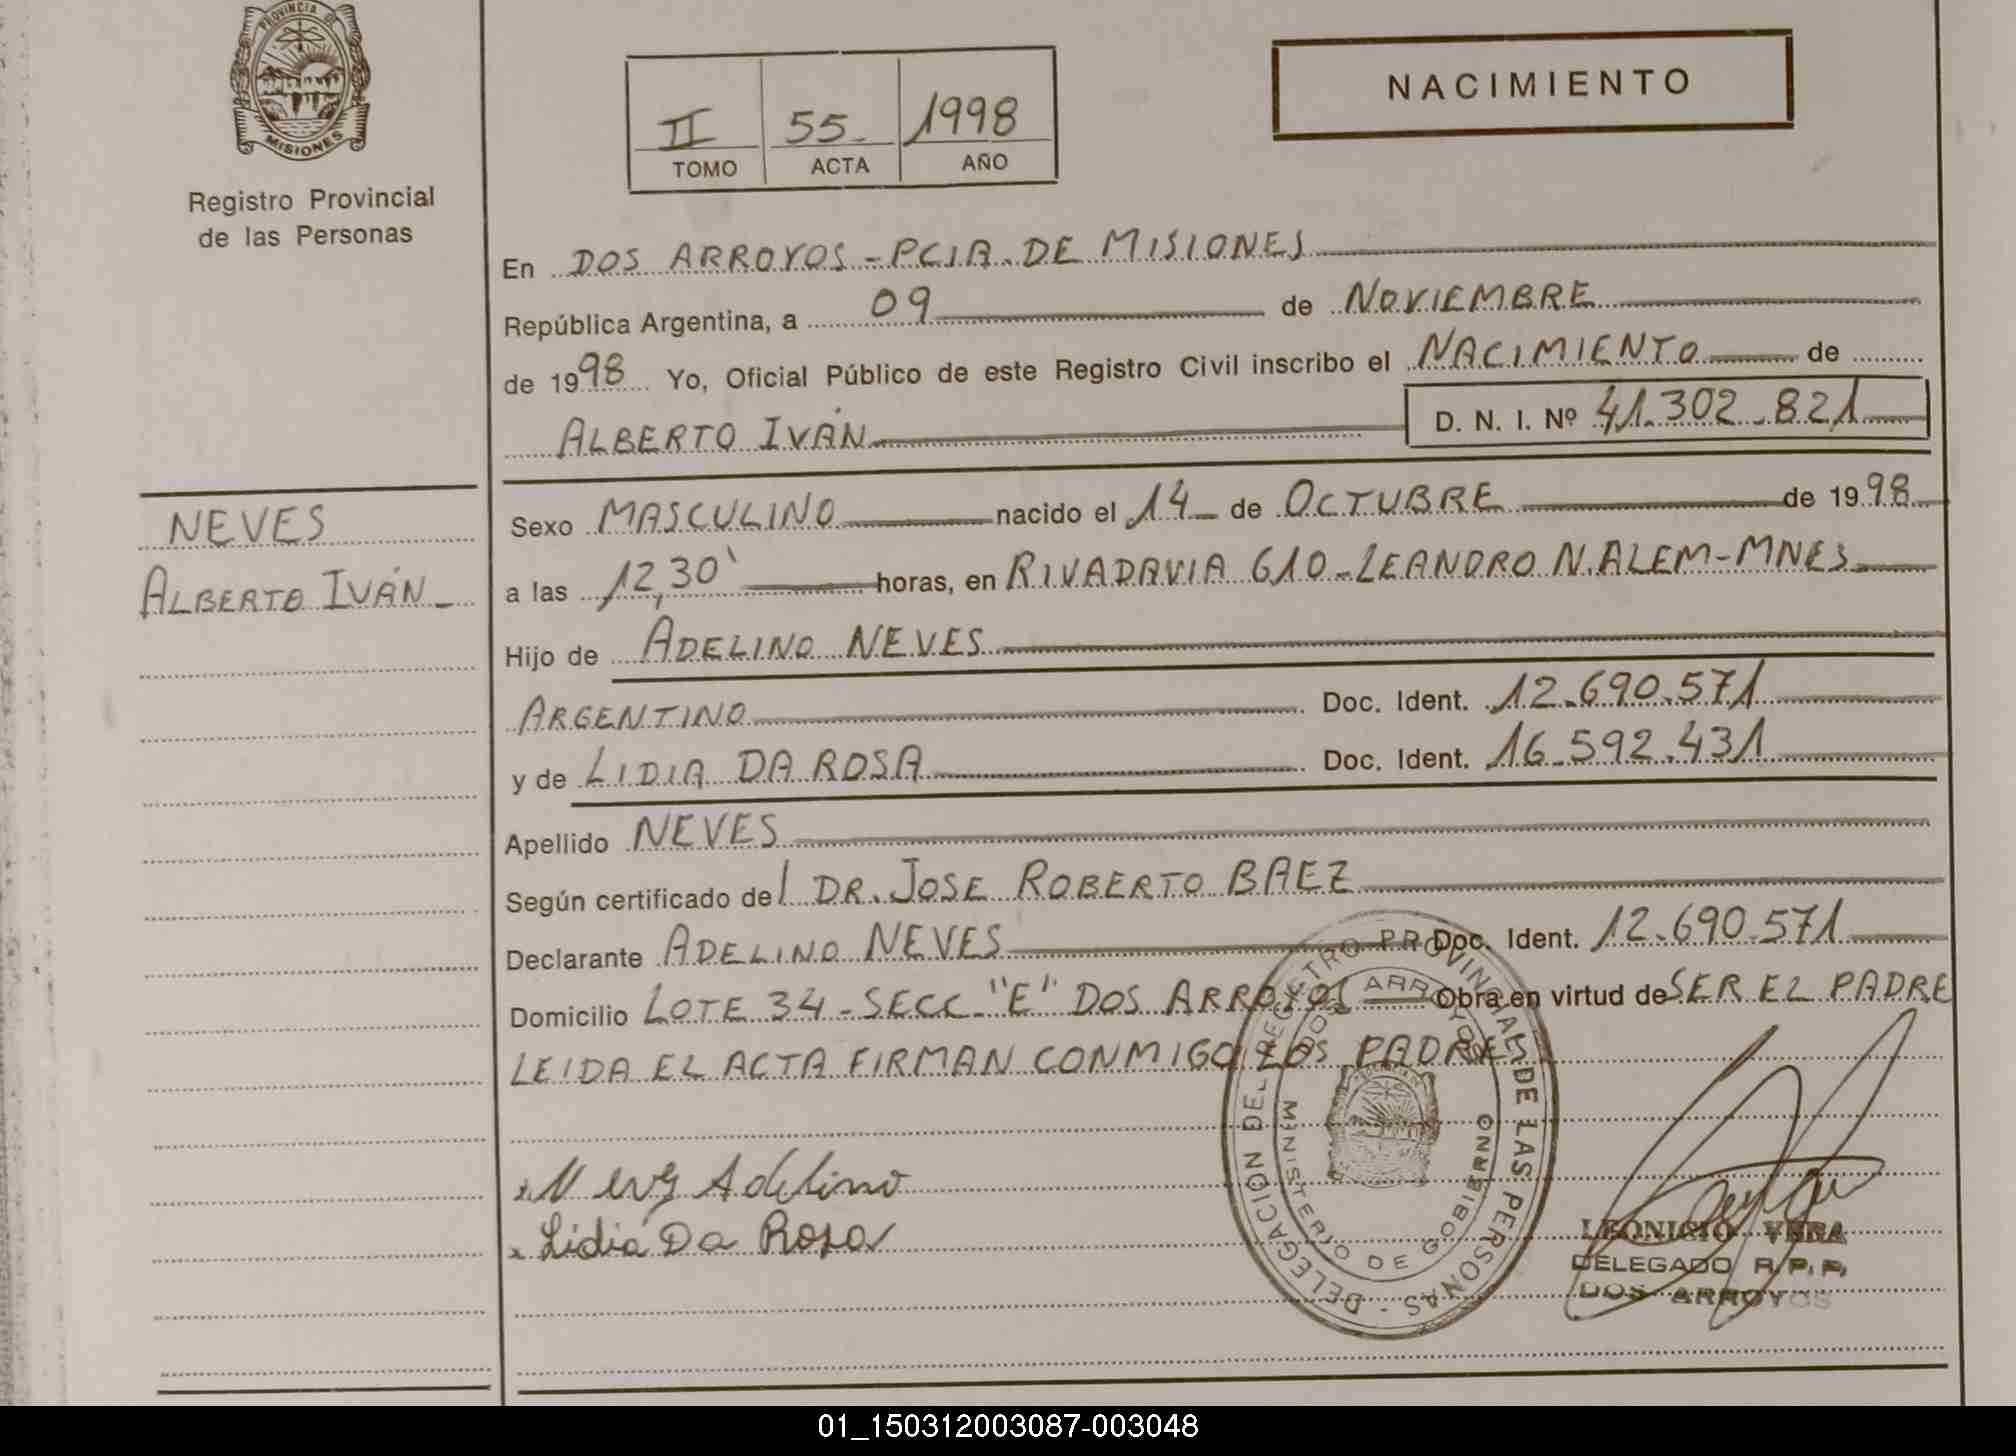 PROVINCIA DE
MISIONES
Registro Provincial
de las Personas
II 55 1998
TOMO ACTA AÑO
NACIMIENTO
En DOS ARROYOS - PCIA. DE MISIONES
República Argentina, a 09 de NOVIEMBRE
de 1998 Yo, Oficial Público de este Registro Civil inscribo el NACIMIENTO de
ALBERTO IVÁN D. N. I. Nº 41.302.821
NEVES
ALBERTO IVÁN
Sexo MASCULINO nacido el 14 de OCTUBRE de 1998
a las 12,30' horas, en RIVADAVIA 610 - LEANDRO N. ALEM - MNES
Hijo de ADELINO NEVES
ARGENTINO Doc. Ident. 12.690.571
y de LIDIA DA ROSA Doc. Ident. 16.592.431
Apellido NEVES
Según certificado del DR. JOSE ROBERTO BAEZ
Declarante ADELINO NEVES Doc. Ident. 12.690.571
Domicilio LOTE 34 - SECC "E" DOS ARROYOS Obra en virtud de SER EL PADRE
LEIDA EL ACTA FIRMAN CONMIGO LOS PADRES
DELEGACION DEL REGISTRO PROVINCIAL DE LAS PERSONAS -
DOS ARROYOS
MINISTERIO DE GOBIERNO
x Neves Adelino
x Lidia Da Rosa
LEONISIO VERA
DELEGADO R.P.P.
DOS ARROYOS
01_150312003087-003048